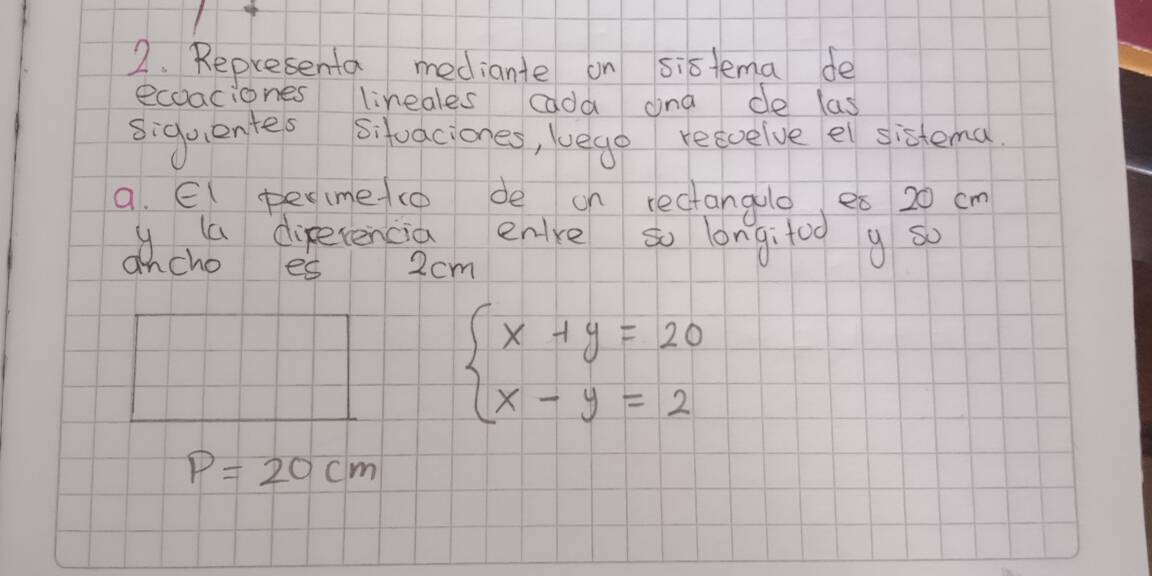 2. Representa mediante un sistema de
ecuaciones lineales cada una de las
siguientes situaciones, luego resuelve el sistema.
a. El perimetro de un rectangulo es 20 cm
y la diferencia entre su longitud y su
ancho es 2cm
x + y = 20
x - y = 2
P = 20 cm